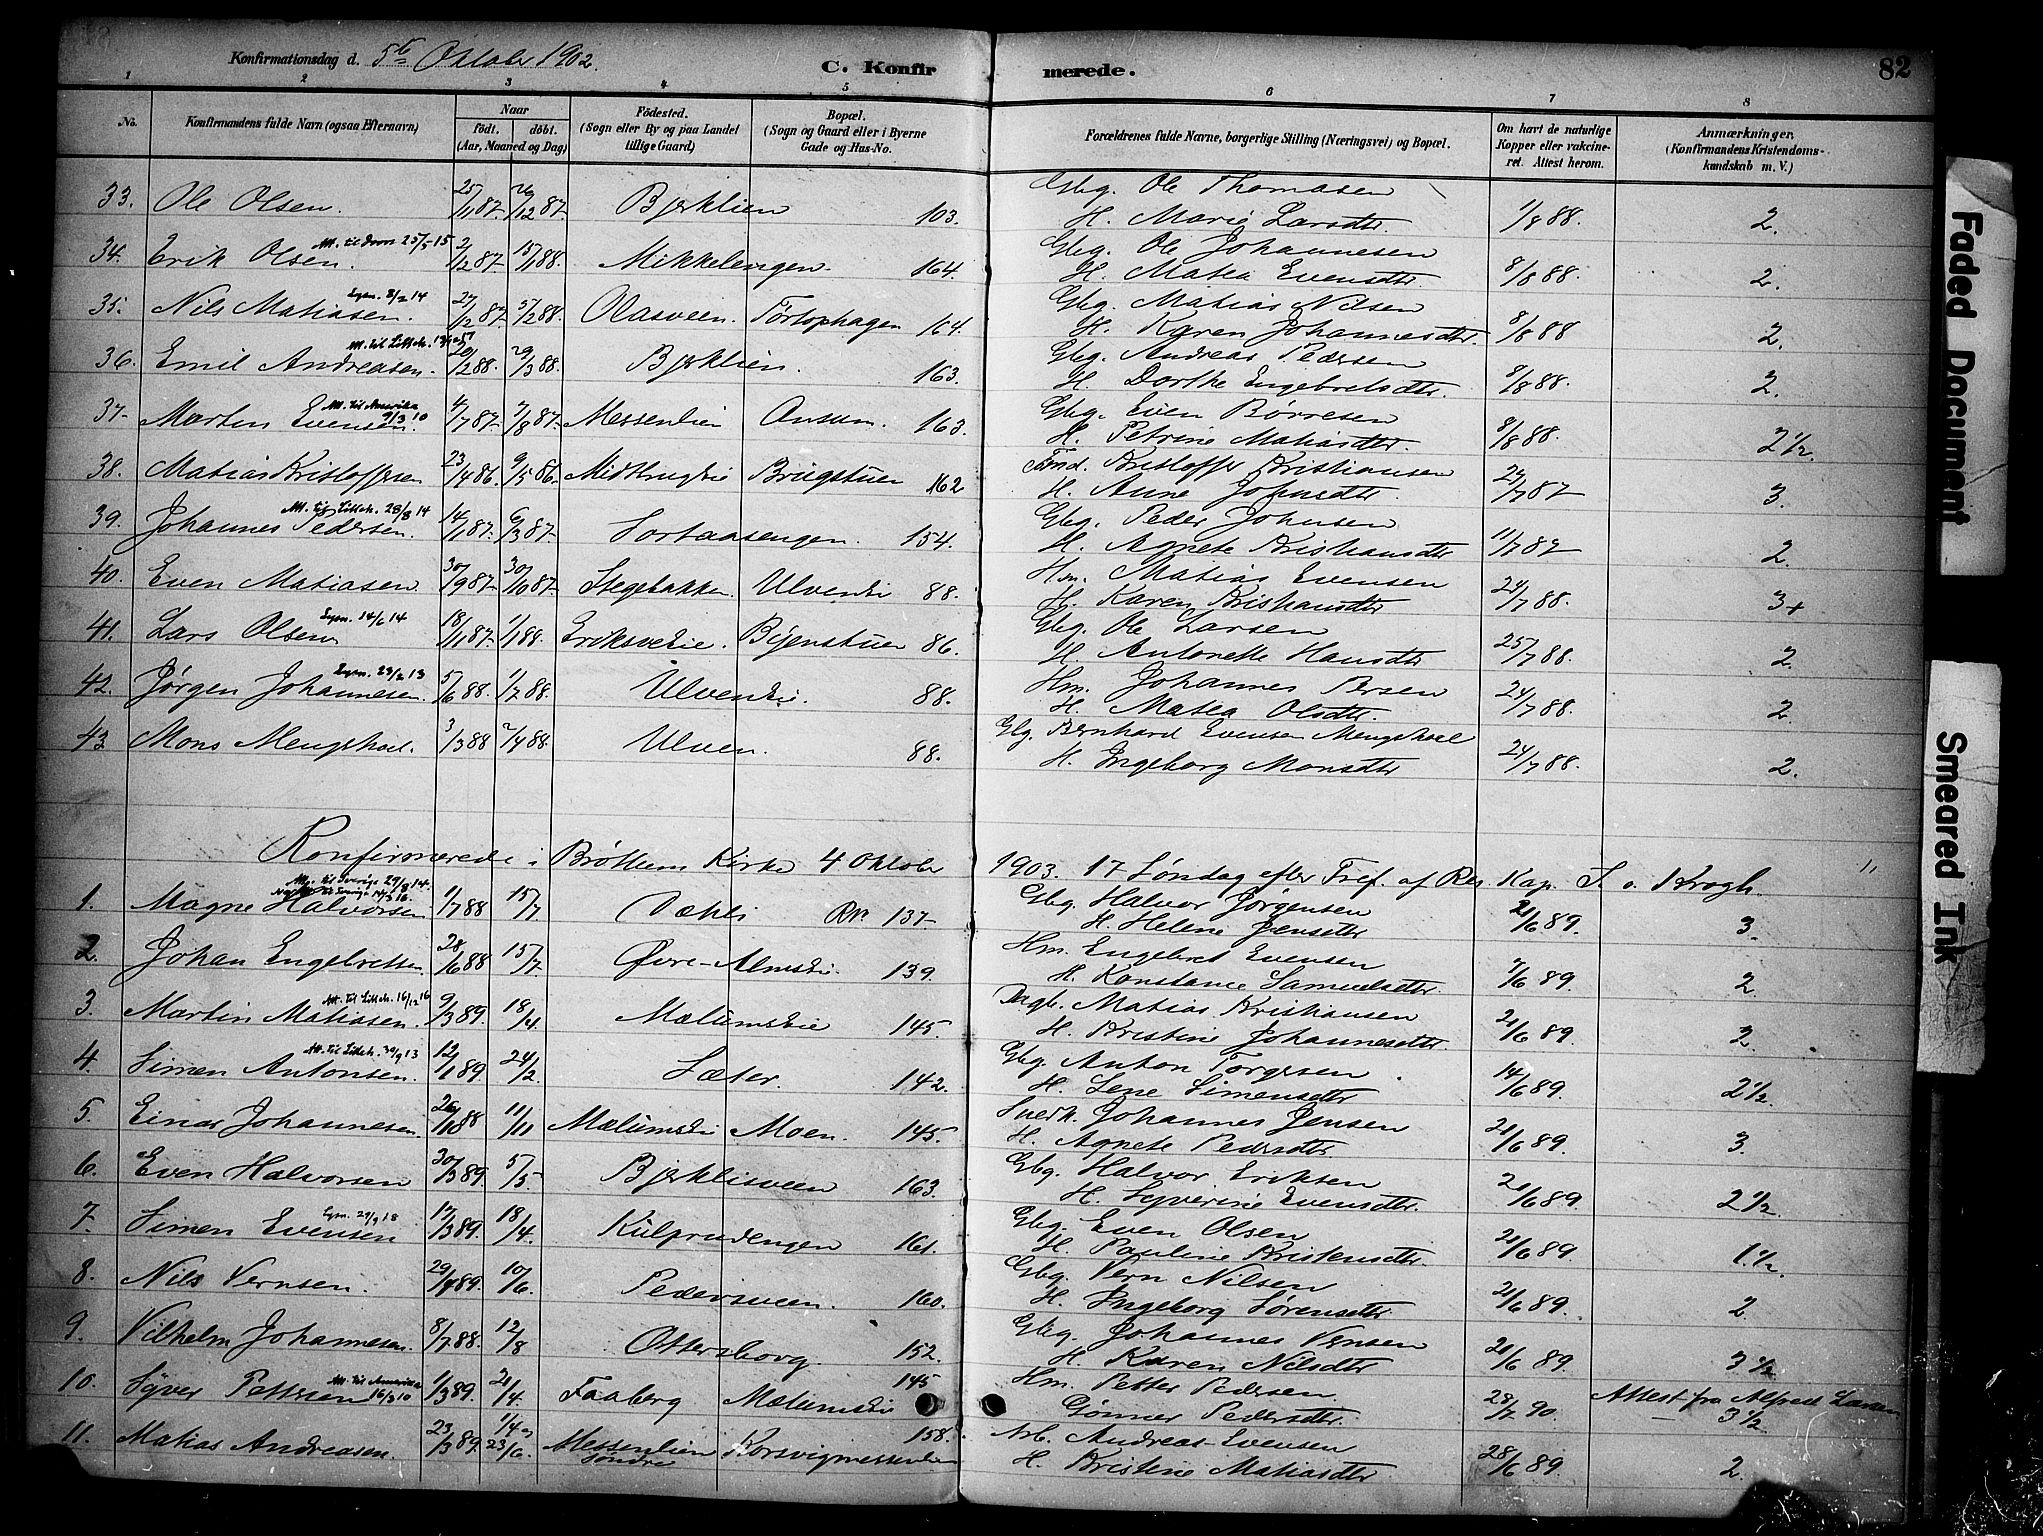 Konfirmationsdag d. 5te Oktober 1902. C. Konfirmerede. 82
1 2 3 4 5 6 7 8
No. Konfirmandens fulde Navn (ogsaa Efternavn) Naar født. døbt. (Aar, Maaned og Dag) Födested. (Sogn eller By og paa Landet tillige Gaard) Bopæl. (Sogn og Gaard eller i Byerne Gade og Hus-No. Forældrenes fulde Navne, borgerlige Stilling (Næringsvei) og Bopæl. Om havt de naturlige Kopper eller vakcineret. Attest herom. Anmærkninger. (Konfirmandens Kristendomskundskab m. V.)
33. Ole Olsen. 25/11 87. 26/12 87. Bjerklien 103. Gbg. Ole Thomasen
H. Marie Larsdtr 1/8 88. 2.
34. Erik Olsen. 2/12 87. 15/1 88. Mikkelengen. 164. Gbg. Ole Johannesen
H. Matea Evensdtr. 8/8 88. 2.
35. Nils Matiasen. Lysn. 8/2 14 27/12 87. 5/2 88. Olasveen. Tortophagen 164. Gbg. Matias Nilsen
H. Karen Johannesdtr. 8/8 88 2.
36. Emil Andreasen. 20/2 88. 29/3 88. Bjerklien. 163. Gbg. Andreas Pedersen
H. Dorthe Engebretsdtr. 8/8 88. 2.
37. Martin Evensen. Att. til Amerika 9/3 10 4/7 87. 7/8 87. Messenlien Onsum. 163. Gbg. Even Børresen
H. Petrine Matiasdtr. 8/8 88. 2 1/2.
38. Matias Kristoffersen 23/4 86. 9/5 86. Midtbrugeie Brugstuen 162 Fmd. Kristoffer Kristiansen
H. Anne Johnsdtr. 27/7 87 3.
39. Johannes Pedersen. Att. til Litleh. 28/8 14 14/1 87. 6/3 87. Sortaasengen. 154. Gbg. Peder Johnsen
H. Agnete Kristiansdtr 11/7 87 2.
40. Even Matiasen 30/9 87. 30/10 87. Stegebakken Ulveneie 88. Hm. Matias Evensen
H. Karen Kristiansdtr 24/7 88. 3+
41. Lars Olsen Lysn. 14/6 14 18/11 87. 1/1 88. Eriksveeie. Bjenstuen 86. Gbg. Ole Larsen
H. Antonette Hansdtr 25/7 88. 2.
42. Jørgen Johannesen. Lysn. 23/2 13 5/6 88. 1/7 88. Ulveneie. 88. Hm. Johannes Persen
H. Matea Olsdtr. 24/7 88. 2.
43 Mons Mengshoel. 3/3 88 2/4 88. Ulven. 88. Gbg. Bernhard Evensen Mengshoel
H. Ingeborg Monsdtr 24/7 88. 2.
Konfirmerede i Brøttum Kirke 4 Oktober 1903. 17 Søndag efter Tref. af Res. Kap. S. v. Krogh.
1. Magne Halvorsen Att. til Sverige 29/8 14. 1/7 88 15/7 Væhli Rn. 137 Gbg. Halvor Jørgensen
H. Helene Jensdtr 21/6 89. 3.
2. Johan Engebretsen 28/6 88 15/7 Øvre-Almseie. 139. Hm. Engebret Evensen
H. Konstance Samuelsdtr. 7/6 89. 2.
3. Martin Matiasen. Att. til Litleh. 16/12 16 9/3 89. 18/4 Mælumseie 145. Dagb. Matias Kristiansen
H. Kristine Johannesdtr. 21/6 89. 2.
4. Simen Antonsen. Att. til Litleh. 30/9 13 12/1 89. 24/2. Sæter. 142. Gbg. Anton Torgersen
H. Lene Simensdtr 14/6 89. 2 1/2
5. Einar Johannesen. 26/10 88 11/11 Mælumseie Moen. 145. Snedk. Johannes Jensen
H. Agnete Pedersdtr 21/6 89. 3.
6. Even Halvorsen 30/3 89. 5/5. Bjerklisveen 163. Gbg. Halvor Eriksen
H. Syverine Evensdtr. 21/6 89. 2 1/2.
7. Simen Evensen Lysn. 29/9 18 17/3 89. 18/4. Kulprudengen 161. Gbg. Even Olsen
H. Pauline Kristensdtr. 21/6 89 1 1/2.
8. Nils Vernsen. 29/4 89. 10/6. Pedersveen. 160. Gbg. Vern Nilsen
H. Ingeborg Sørensdtr 21/6 89. 2.
9. Vilhelm Johannesen. 8/7 88. 12/8 Ottersborg. 152. Gbg. Johannes Vernsen
H. Karen Nilsdtr 21/6 89. 3 1/2
10. Syver Pettersen Att. til Amerika 16/3 10 1/3 89. 21/4. Faaberg Mælumseie 145 Hm. Petter Pedersen
Gønner Pedersdtr 28/7 90. Attest fra Alfred Larsen 3 1/2
11. Matias Andreasen. 23/3 89. 14/4 23/6. Messenlien søndre Korsvigmessenlien 158. Arb. Andreas Evensen
H. Kristine Matiasdtr 28/6 89. 2.
Faded Document
Smeared Ink